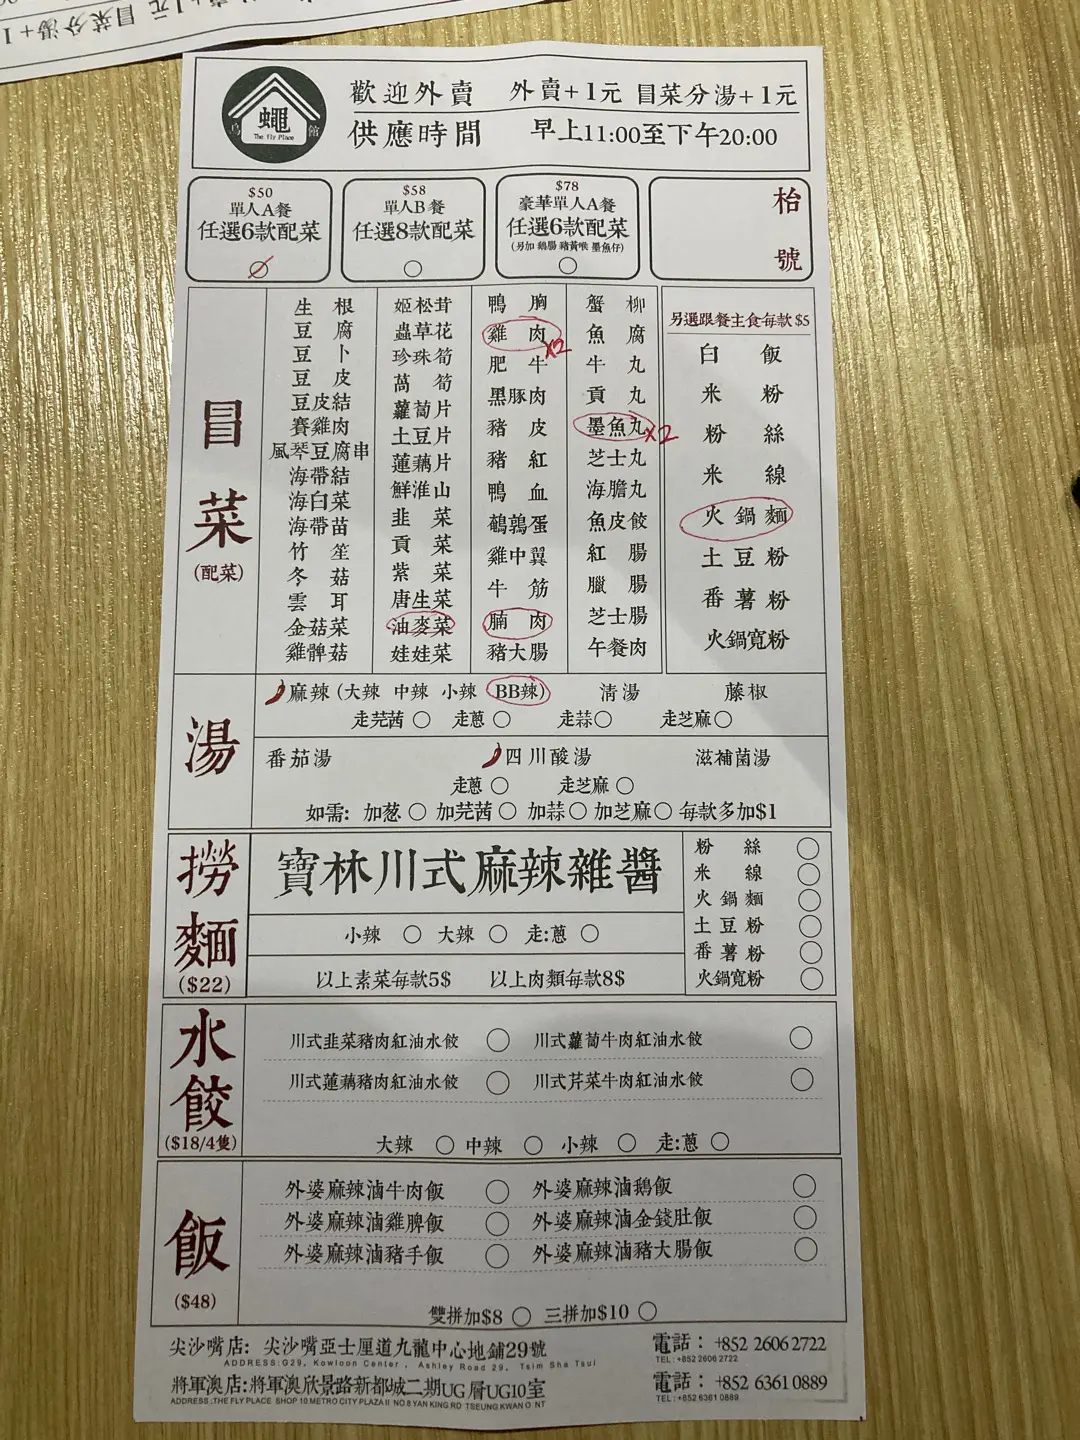 +1元 冒菜分湯+1
蠅
鸟 館
The Fly Place
歡迎外賣 外賣+1元 冒菜分湯+1元
供應時間 早上11:00至下午20:00
$50
單人A餐
任選6款配菜
$58
單人B餐
任選8款配菜
$78
豪華單人A餐
任選6款配菜
(另加 鵝腸 豬黃喉 墨魚仔)
枱號
冒菜
(配菜)
生根
豆腐
豆卜
豆皮
豆皮結
賽雞肉
風琴豆腐串
海帶結
海白菜
海帶苗
竹笙
冬菇
雲耳
金菇菜
雞髀菇
姬松茸
蟲草花
珍珠筍
萵筍
蘿蔔片
土豆片
蓮藕片
鮮淮山
韭菜
貢菜
紫菜
唐生菜
油麥菜
娃娃菜
鴨胸
雞肉 x2
肥牛
黑豚肉
豬皮
豬紅
鴨血
鵪鶉蛋
雞中翼
牛筋
腩肉
豬大腸
蟹柳
魚腐
牛丸
貢丸
墨魚丸 x2
芝士丸
海膽丸
魚皮餃
紅腸
臘腸
芝士腸
午餐肉
另選跟餐主食每款$5
白飯
米粉
粉絲
米線
火鍋麵
土豆粉
番薯粉
火鍋寬粉
湯
麻辣 (大辣 中辣 小辣 BB辣) 清湯 藤椒
走芫茜 ○ 走蔥 ○ 走蒜○ 走芝麻○
番茄湯 四川酸湯 滋補菌湯
走蔥 ○ 走芝麻 ○
如需: 加葱 ○ 加芫茜 ○ 加蒜 ○ 加芝麻○ 每款多加$1
撈麵
($22)
寶林川式麻辣雜醬
小辣 ○ 大辣 ○ 走:蔥 ○
以上素菜每款5$ 以上肉類每款8$
粉絲 ○
米線 ○
火鍋麵 ○
土豆粉 ○
番薯粉 ○
火鍋寬粉 ○
水餃
($18/4隻)
川式韭菜豬肉紅油水餃 ○ 川式蘿蔔牛肉紅油水餃 ○
川式蓮藕豬肉紅油水餃 ○ 川式芹菜牛肉紅油水餃 ○
大辣 ○ 中辣 ○ 小辣 ○ 走:蔥 ○
飯
($48)
外婆麻辣滷牛肉飯 ○ 外婆麻辣滷鵝飯 ○
外婆麻辣滷雞脾飯 ○ 外婆麻辣滷金錢肚飯 ○
外婆麻辣滷豬手飯 ○ 外婆麻辣滷豬大腸飯 ○
雙拼加$8 ○ 三拼加$10 ○
尖沙嘴店: 尖沙嘴亞士厘道九龍中心地鋪29號 電話： +852 2606 2722
ADDRESS:G29, Kowloon Center, Ashley Road 29, Tsim Sha Tsui TEL:+852 2606 2722
將軍澳店:將軍澳欣景路新都城二期UG層UG10室 電話： +852 6361 0889
ADDRESS:THE FLY PLACE SHOP 10 METRO CITY PLAZA II NO 8 YAN KING RD TSEUNG KWAN O NT TEL:+852 6361 0889